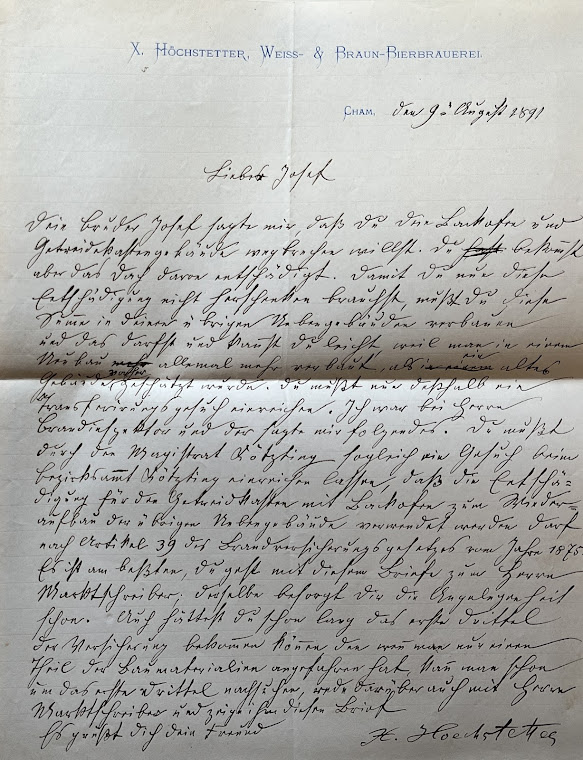 X. Höchstetter, Weiss- & Braun-Bierbrauerei.
Cham, den 9. August 1891
Lieber Josef
Dein Bruder Josef sagte mir, daß du die Backofen und
Getreidekastengebäude wegbrechen willst. Du bekommst
aber das doch davon entschädigt. Damit du nun diese
Entschädigung nicht herschenken brauchst, mußt du diese
Summe in deinen übrigen Nebengebäuden verbauen
und das darfst und kannst du leicht weil man in einem
Neubau allemal mehr verbaut, als ein altes
Gebäude vorher geschätzt wurde. Du mußt nun deßhalb ein
Transferirungsgesuch einreichen. Ich war bei Herrn
Brandinspektor und der sagte mir folgendes. Du mußt
durch den Magistrat Kötzting sogleich ein Gesuch beim
Bezirksamt Kötzting einreichen lassen, daß die Entschä-
digung für den Getreidkasten mit Backofen zum Wieder-
aufbau der übrigen Nebengebäude verwendet werden darf
nach Artikel 39 des Brandversicherungsgesetzes vom Jahre 1875
Es ist am beßten, du gest mit diesem Briefe zum Herrn
Marktschreiber; derselbe besorgt dir die Angelegenheit
schon. Auch hättest du schon lang das erste Drittel
der Versicherung bekommen können den wenn man nur einen
Theil der Baumaterialien angefahren hat kann man schon
um das erste Drittel nachsuchen, rede darüber auch mit Herrn
Marktschreiber und zeige ihm diesen Brief
Es grüßt dich dein Freund
X. Hoechstetter